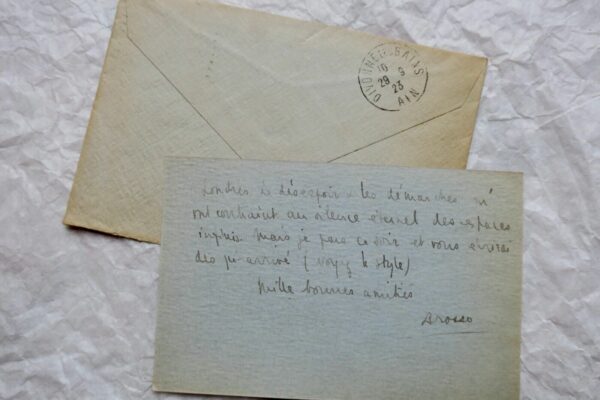 DIVONNE-LES-BAINS
10
29 9
23
AIN
Londres le désespoir les démarches m'
ont contraint au silence éternel des espaces
infinis mais je pars ce soir et vous écrirai
dès arrivé (voyez le style)
Mille bonnes amitiés